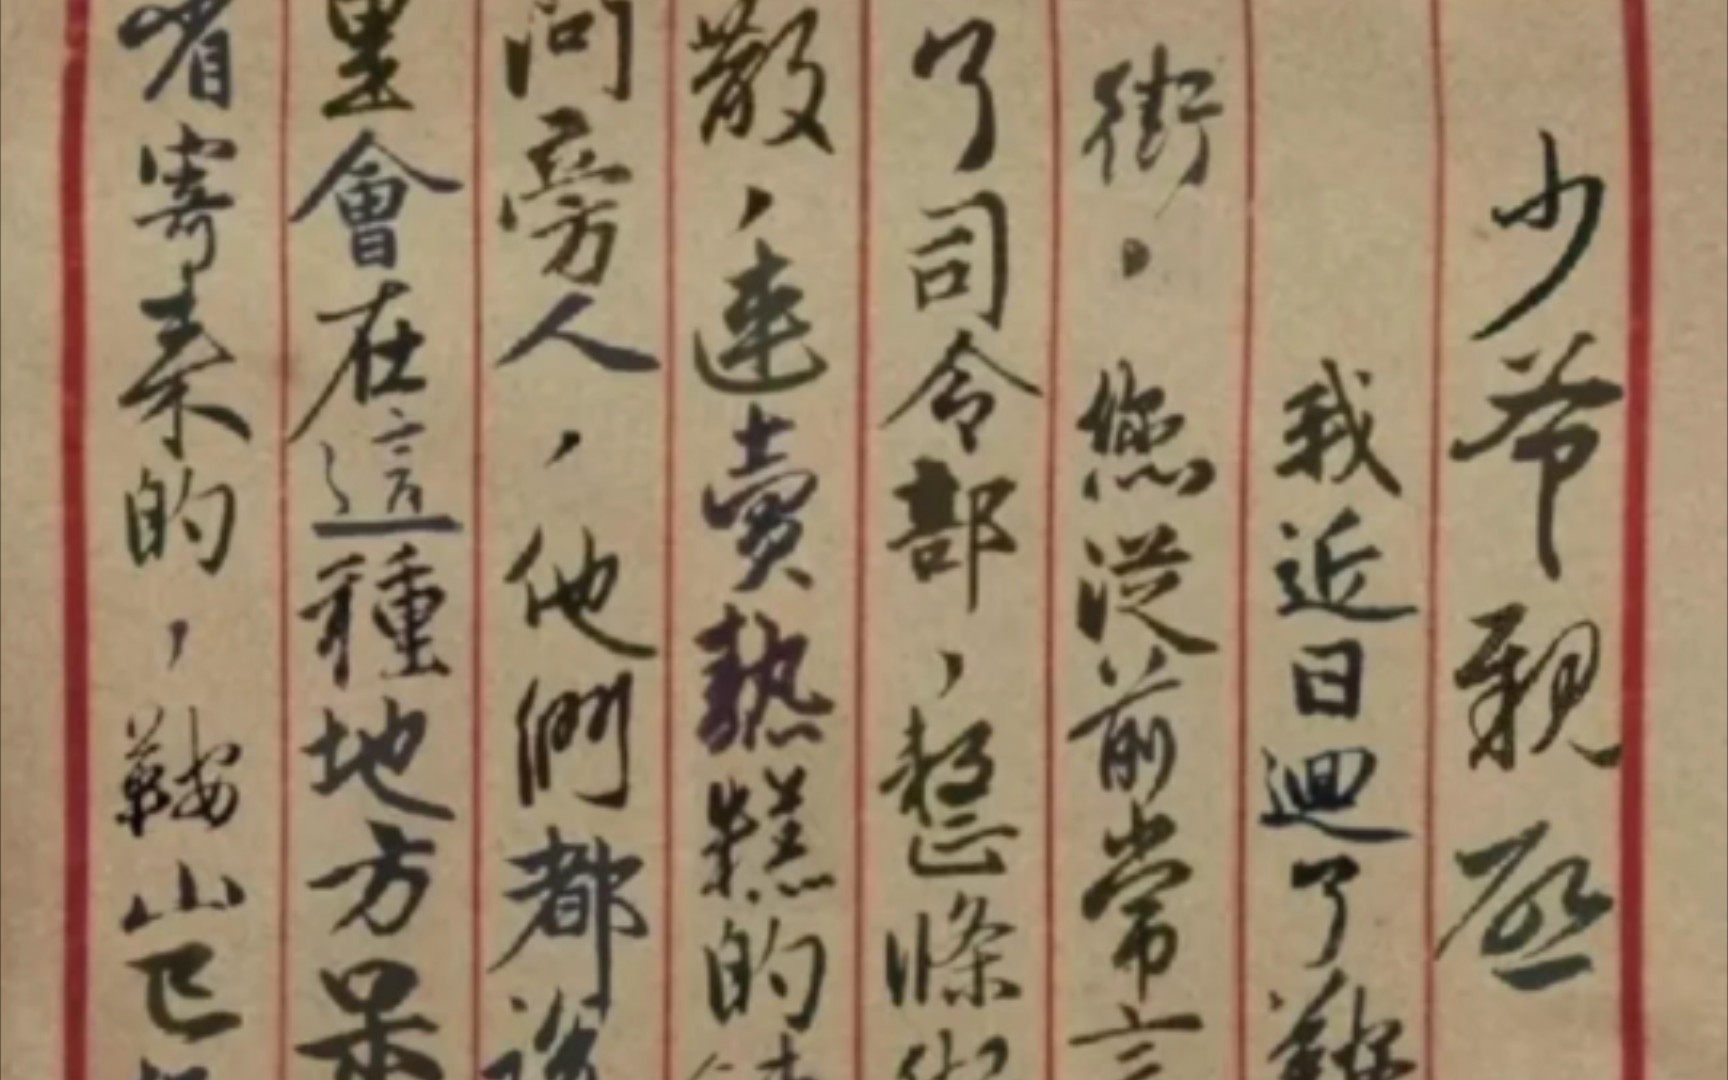 少爷親啟
我近日迴了鞍
街。您從前常言
了司令部,整條街
散,連賣熱糕的
问旁人,他們都說
里會在這種地方呆
省寄来的,鞍山已